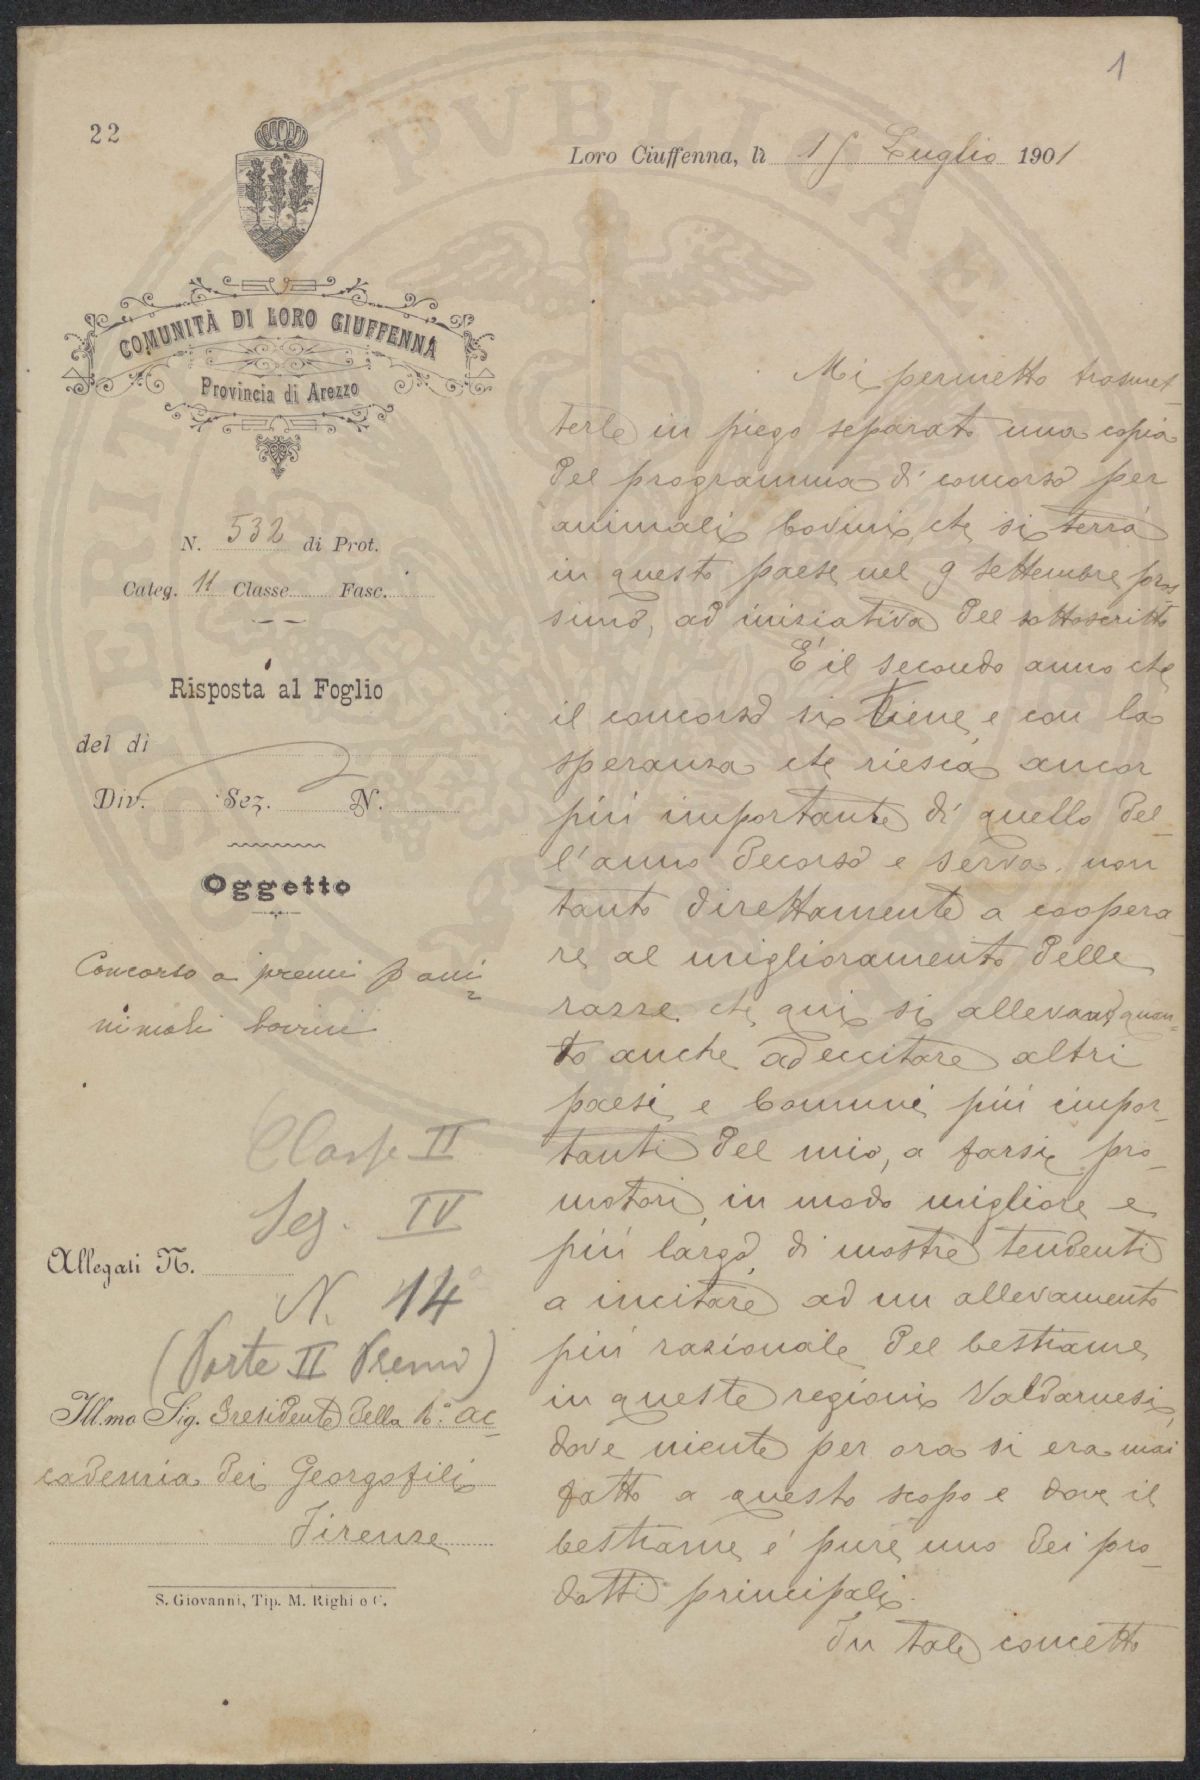 1
22
Loro Ciuffenna, lì 15 Luglio 1901
COMUNITÀ DI LORO GIUFFENNA
Provincia di Arezzo
N. 532 di Prot.
Categ. 11 Classe Fasc.
Risposta al Foglio
del dì
Div. Sez. N.
Oggetto
Concorso a premi p ani=
nimali bovini
Classe II
Seg. IV
Allegati N.
N. 14
(Parte II Premio)
Ill.mo Sig. Presidente della R.a Ac=
cademia dei Georgofili
Firenze
S. Giovanni, Tip. M. Righi e C.
Mi permetto trasmet-
terle in piego separato una copia
del programma di concorso per
animali bovini che si terrà
in questo paese nel 9 settembre pros-
simo, ad iniziativa del sottoscritto
È il secondo anno che
il concorso si tiene, e con la
speranza che riesca ancor
più importante di quello del-
l'anno decorso e serva, non
tanto direttamente a coopera-
re al miglioramento delle
razze che qui si allevano, quan=
to anche ad eccitare altri
paesi e Comuni più impor-
tanti del mio, a farsi pro-
motori, in modo migliore e
più largo, di mostre tendenti
a incitare ad un allevamento
più razionale del bestiame
in queste regioni Valdarnesi,
dove niente per ora si era mai
fatto a questo scopo e dove il
bestiame è pure uno dei pro-
dotti principali.
In tale concetto
PVBLICAE